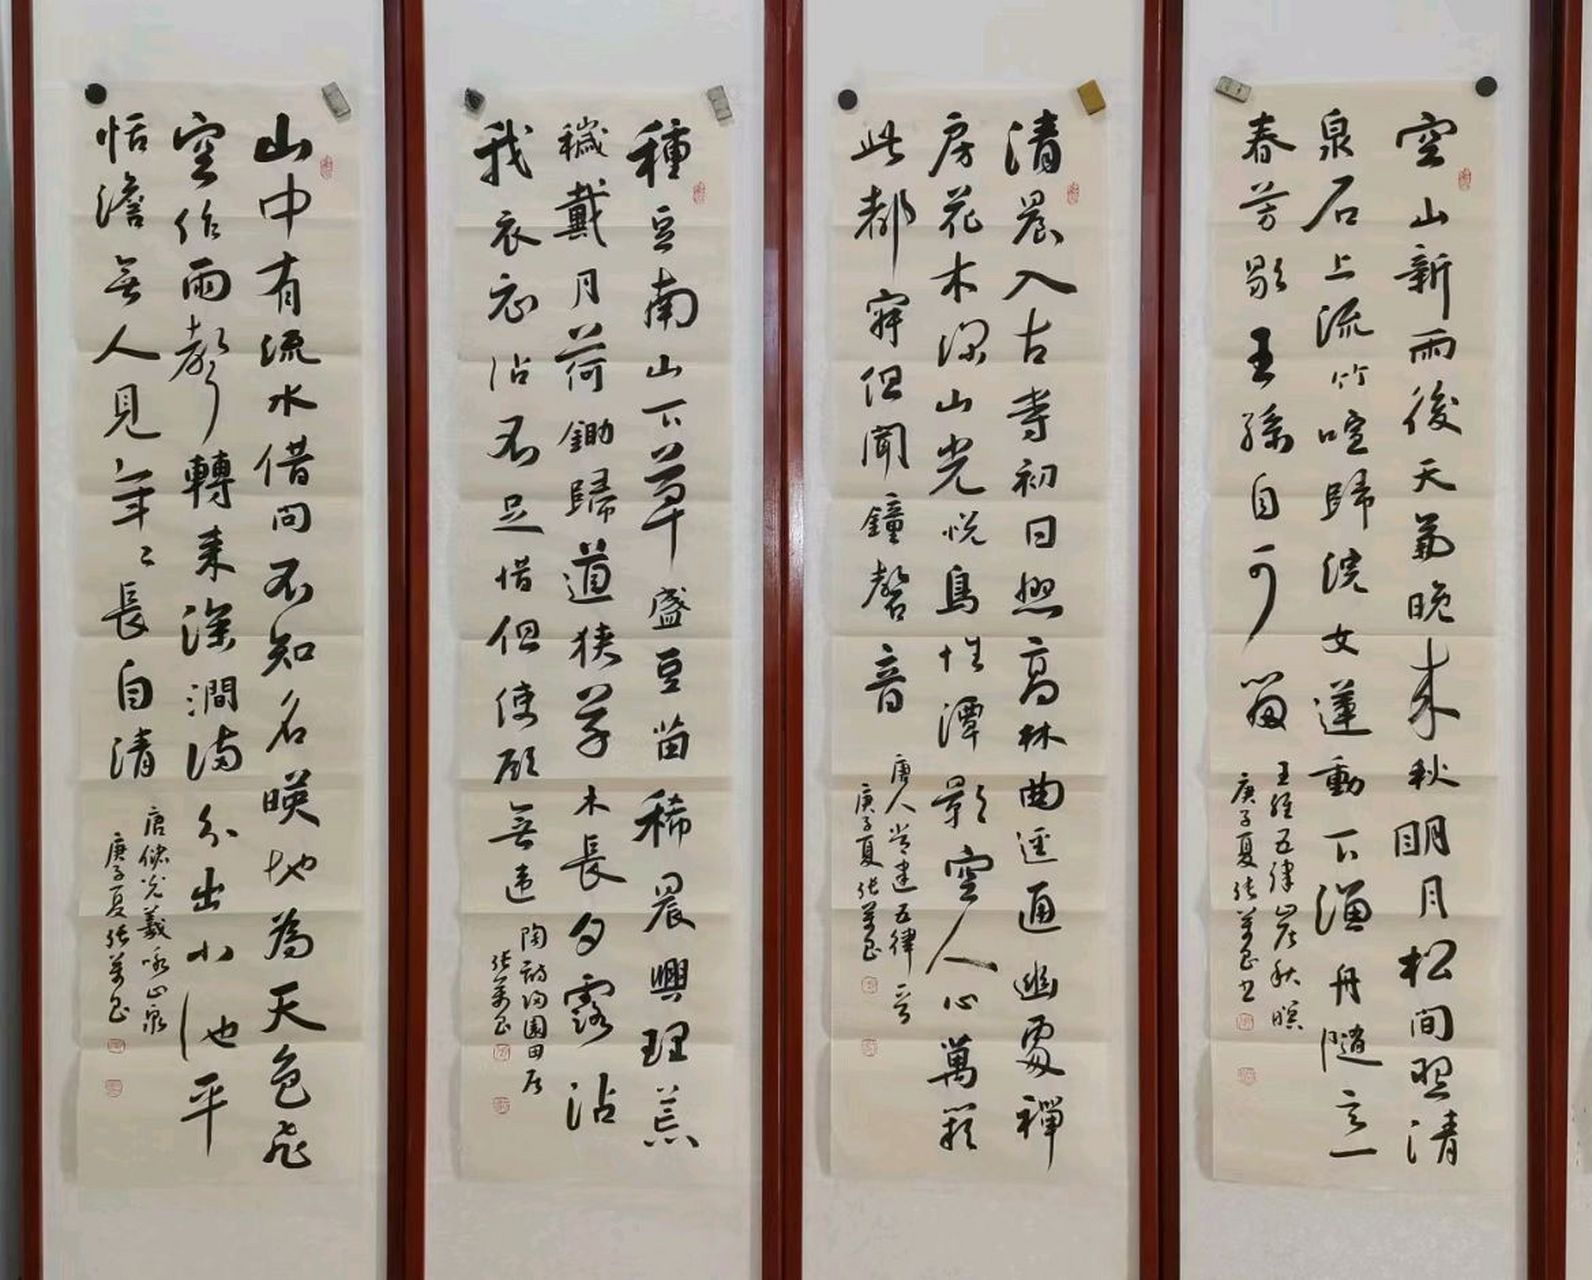 空山新雨後天氣晚来秋明月松間照清
泉石上流竹喧歸浣女蓮動下漁舟隨意
春芳歇王孫自可留
王維五律山居秋暝
庚子夏张萬书
清晨入古寺初日照高林曲逕通幽處禪
房花木深山光悅鳥性潭影空人心萬籟
此都寂但聞鐘磬音
唐人常建五律
庚子夏张萬
種豆南山下草盛豆苗稀晨興理荒
穢戴月荷鋤歸道狹草木長夕露沾
我衣衣沾不足惜但使願無違
陶詩歸園田居
张萬
山中有流水借問不知名暎地為天色飛
空作雨聲轉来深澗滿分出小池平
恬澹無人見年々長自清
唐儲光羲咏山泉
庚子夏张萬